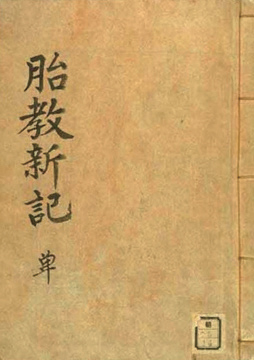 胎教新記
単